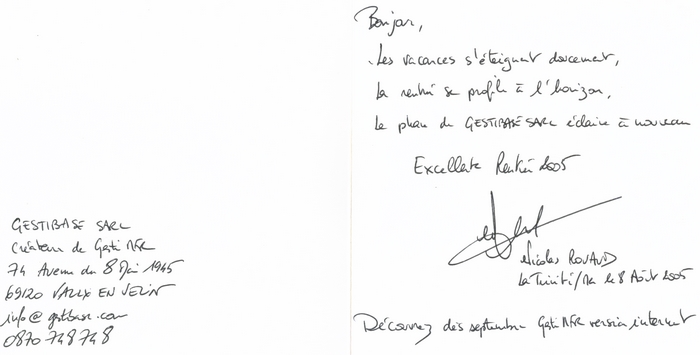 GESTIBASE SARL
Créateur de Gesti MFR
74 Avenue du 8 Mai 1945
69120 VAULX EN VELIN
info@gestibase.com
0870 748 748
Bonjour,
Les vacances s'éteignent doucement,
La rentrée se profile à l'horizon,
Le phare de GESTIBASE SARL éclaire à nouveau
Excellente Rentrée 2005
Nicolas ROUAUD
La Trinité/Mer le 8 Août 2005
Découvrez dès septembre Gesti MFR version internet